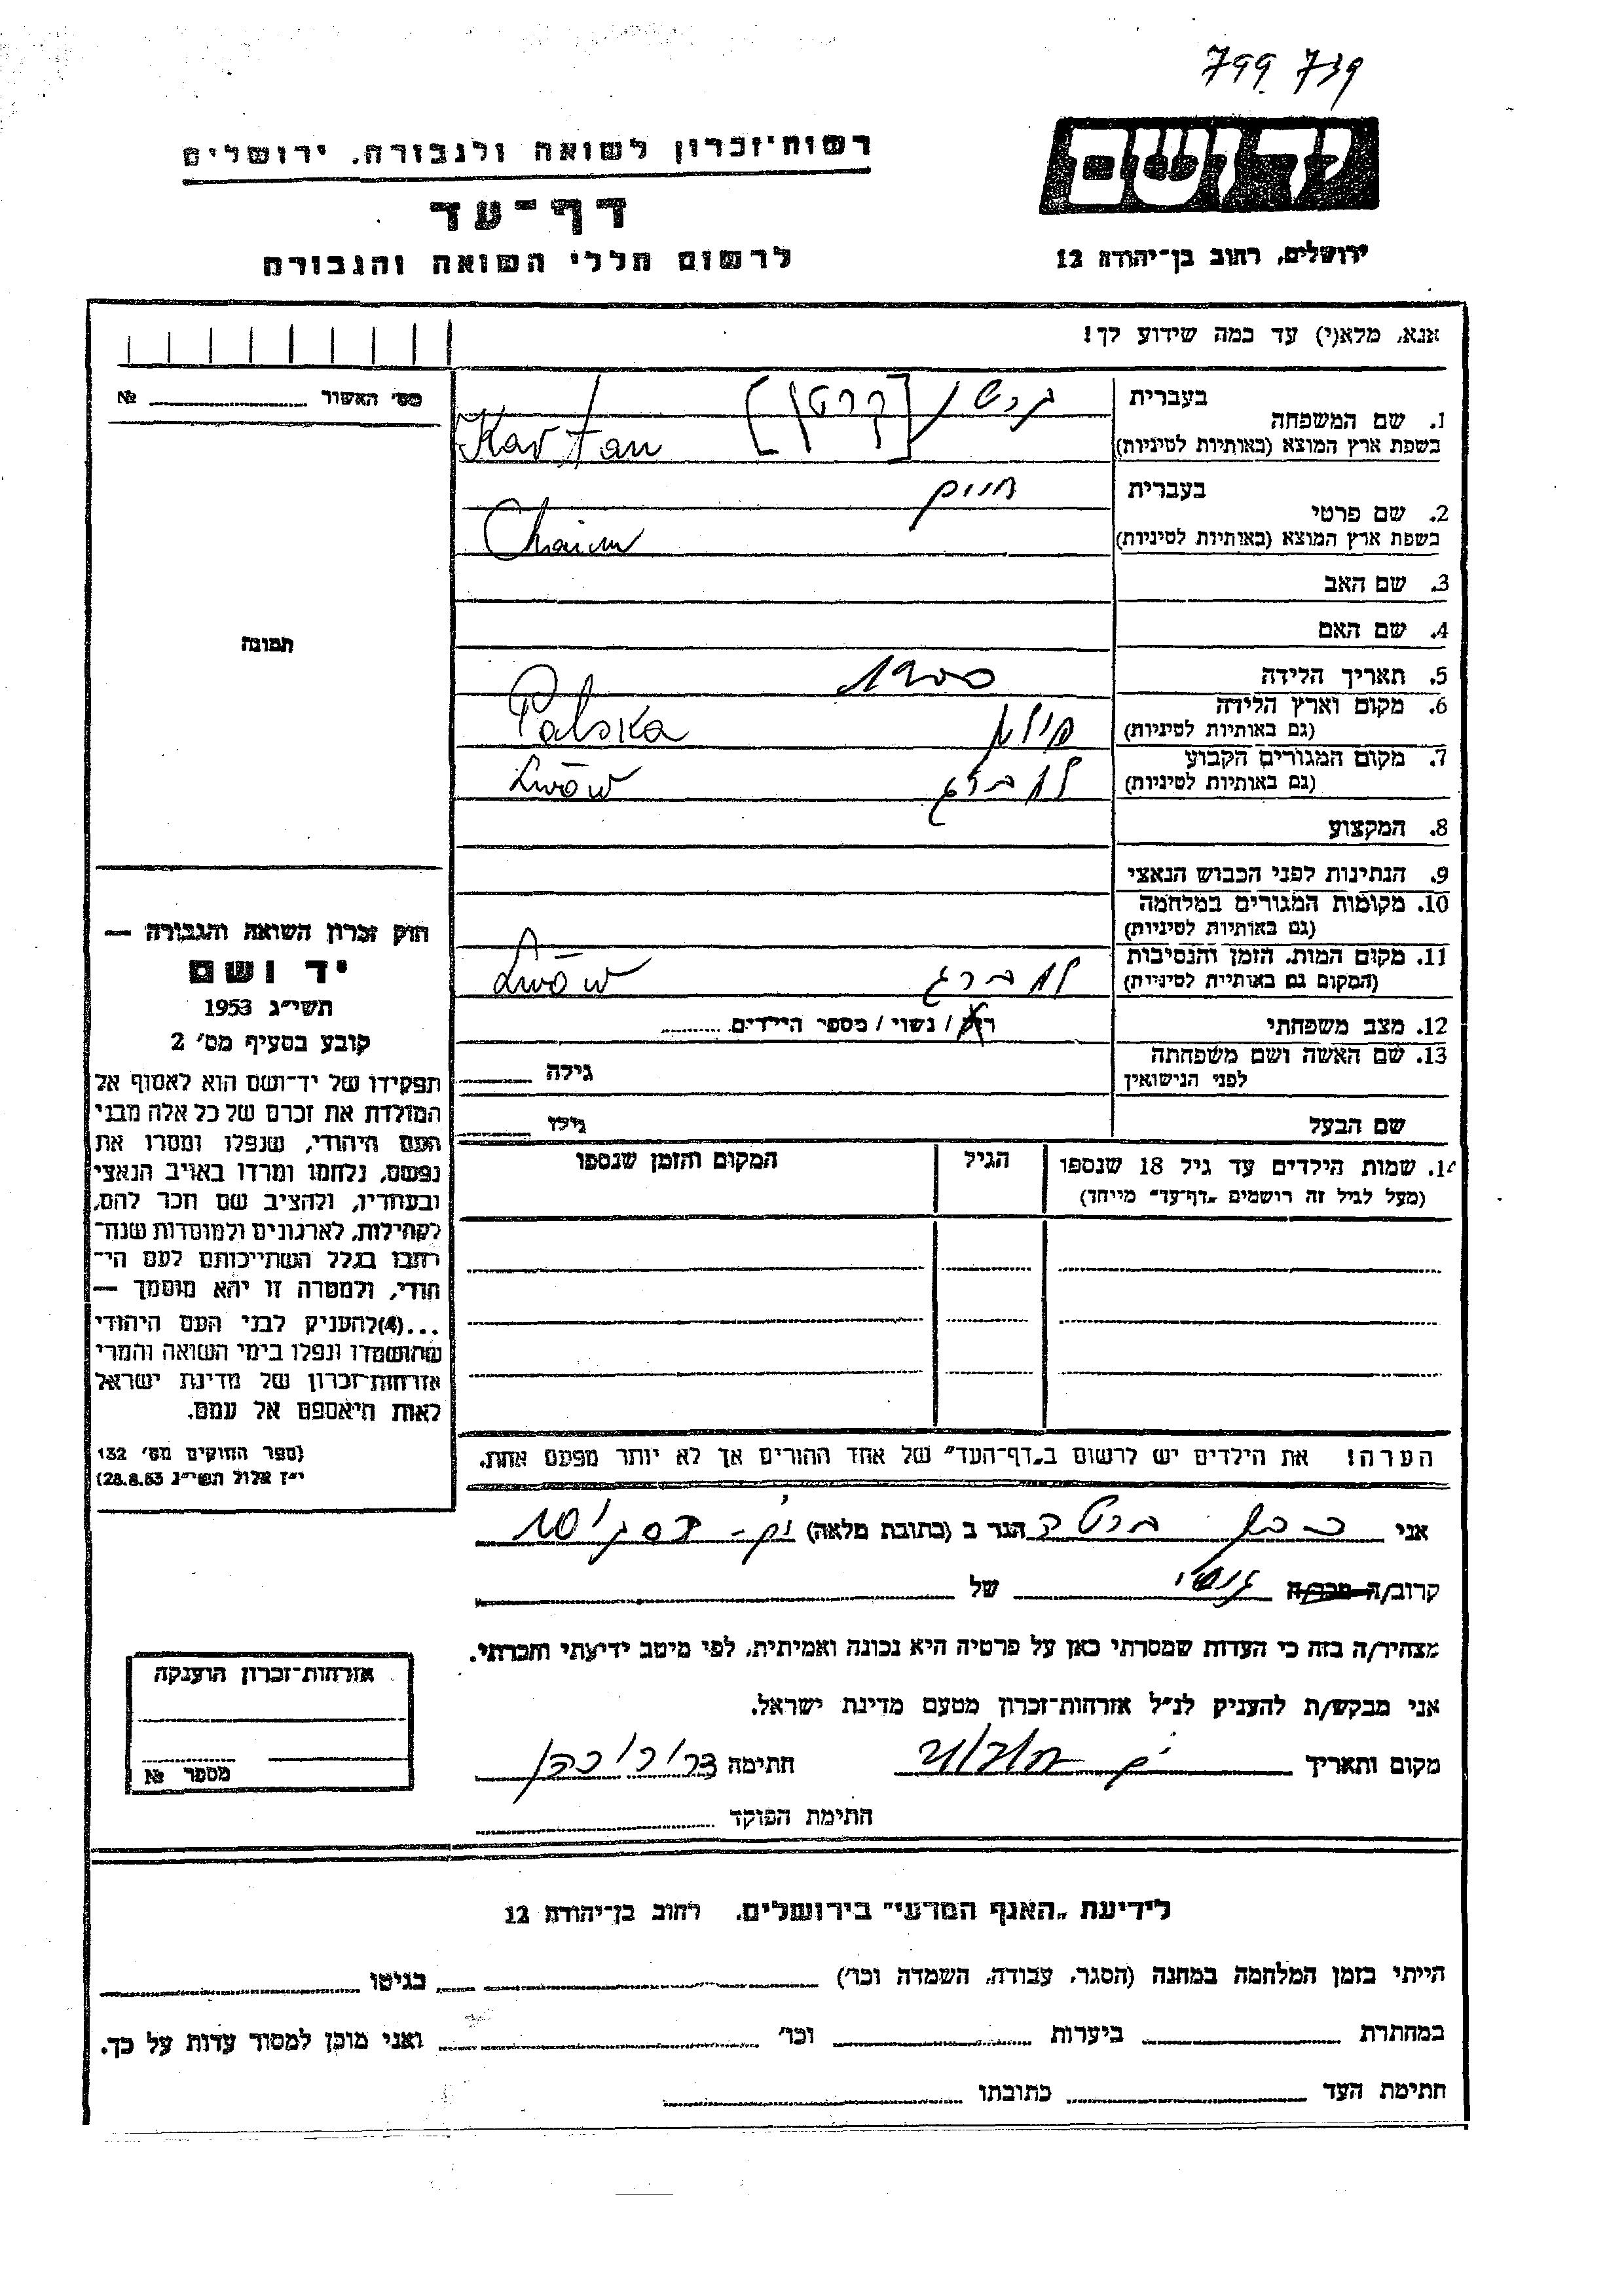 799 739
יד ושם
ירושלים, רחוב בן־יהודה 12
רשות־זכרון לשואה ולגבורה, ירושלים
דף־עד
לרשום חללי השואה והגבורה
אנא, מלא(י) עד כמה שידוע לך!
מס׳ האשור № 
1. שם המשפחה
בעברית [קרטן]
בשפת ארץ המוצא (באותיות לטיניות) Kartan
2. שם פרטי
בעברית חיים
בשפת ארץ המוצא (באותיות לטיניות) Chaim
3. שם האב
4. שם האם
5. תאריך הלידה 1900
6. מקום וארץ הלידה
(גם באותיות לטיניות) פולין Polska
7. מקום המגורים הקבוע
(גם באותיות לטיניות) למברג Lwów
8. המקצוע
9. הנתינות לפני הכבוש הנאצי
10. מקומות המגורים במלחמה
(גם באותיות לטיניות)
11. מקום המות, הזמן והנסיבות
(המקום גם באותיות לטיניות) למברג Lwów
12. מצב משפחתי רוק / נשוי / מספר הילדים
13. שם האשה ושם משפחתה
לפני הנישואין גילה
שם הבעל גילו
14. שמות הילדים עד גיל 18 שנספו הגיל המקום והזמן שנספו
(מעל לגיל זה רושמים „דף־עד״ מייחד)
הערה! את הילדים יש לרשום ב„דף־העד״ של אחד ההורים אך לא יותר מפעם אחת.
תמונה
חוק זכרון השואה והגבורה —
יד ושם
תשי״ג 1953
קובע בסעיף מס׳ 2
תפקידו של יד־ושם הוא לאסוף אל
המולדת את זכרם של כל אלה מבני
העם היהודי, שנפלו ומסרו את
נפשם, נלחמו ומרדו באויב הנאצי
ובעוזריו, ולהציב שם וזכר להם,
לקהילות, לארגונים ולמוסדות שנח־
רחבו בגלל השתייכותם לעם הי־
הודי, ולמטרה זו יהא מוסמך —
...(4) להעניק לבני העם היהודי
שהושמדו ונפלו בימי השואה והמרי
אזרחות־זכרון של מדינת ישראל
לאות היאספם אל עמם.
(ספר החוקים מס׳ 132
י״ז אלול תשי״ג 28.8.53)
אני הגר ב (כתובת מלאה)
קרוב/ה מכר/ה של
מצהיר/ה בזה כי העדות שמסרתי כאן על פרטיה היא נכונה ואמיתית, לפי מיטב ידיעתי והכרתי.
אני מבקש/ת להעניק לנ״ל אזרחות־זכרון מטעם מדינת ישראל.
מקום ותאריך חתימה
חתימת הפוקד
אזרחות־זכרון הוענקה
מספר №
לידיעת „האגף המדעי״ בירושלים, רחוב בן־יהודה 12
הייתי בזמן המלחמה במחנה (הסגר, עבודה, השמדה וכו׳) בגיטו
במחתרת ביערות וכו׳ ואני מוכן למסור עדות על כך.
חתימת העד כתובתו